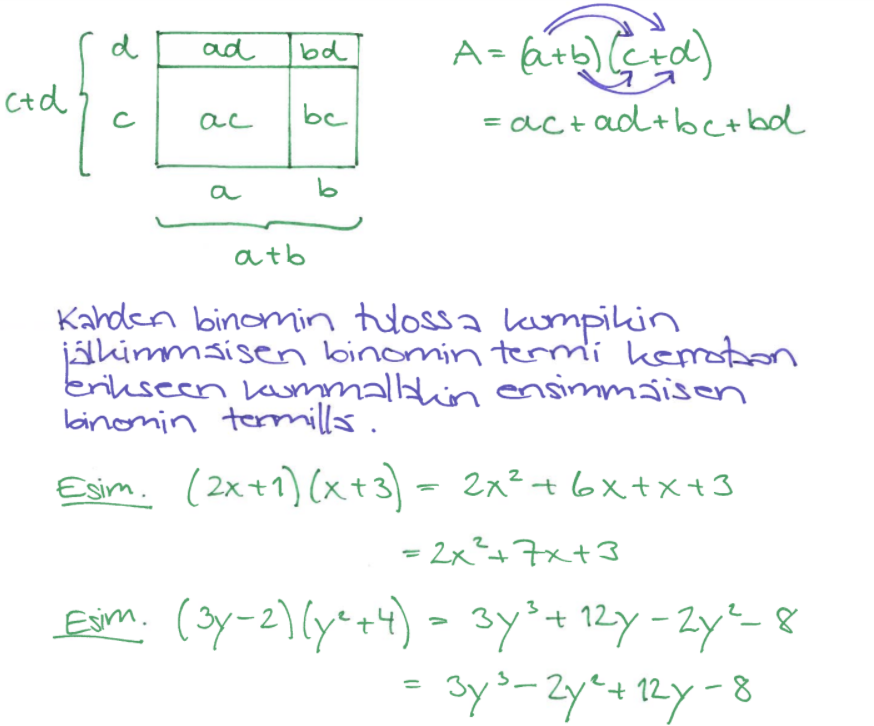 d ad bd
c+d
c ac bc
a b
a+b
A = (a+b)(c+d)
= ac + ad + bc + bd
Kahden binomin tulossa kumpikin
jälkimmäisen binomin termi kerrotaan
erikseen kummallakin ensimmäisen
binomin termillä.
Esim. (2x+1)(x+3) = 2x² + 6x + x + 3
= 2x² + 7x + 3
Esim. (3y-2)(y²+4) = 3y³ + 12y - 2y² - 8
= 3y³ - 2y² + 12y - 8